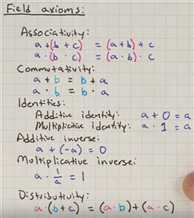 Field axioms:
Associativity:
a+(b+c) = (a+b)+c
a·(b·c) = (a·b)·c
Commutativity:
a+b = b+a
a·b = b·a
Identities:
Additive identity: a+0=a
Multiplicative identity: a·1=a
Additive inverse:
a+(-a)=0
Multiplicative inverse:
a·1/a=1
Distributivity:
a·(b+c) = (a·b)+(a·c)